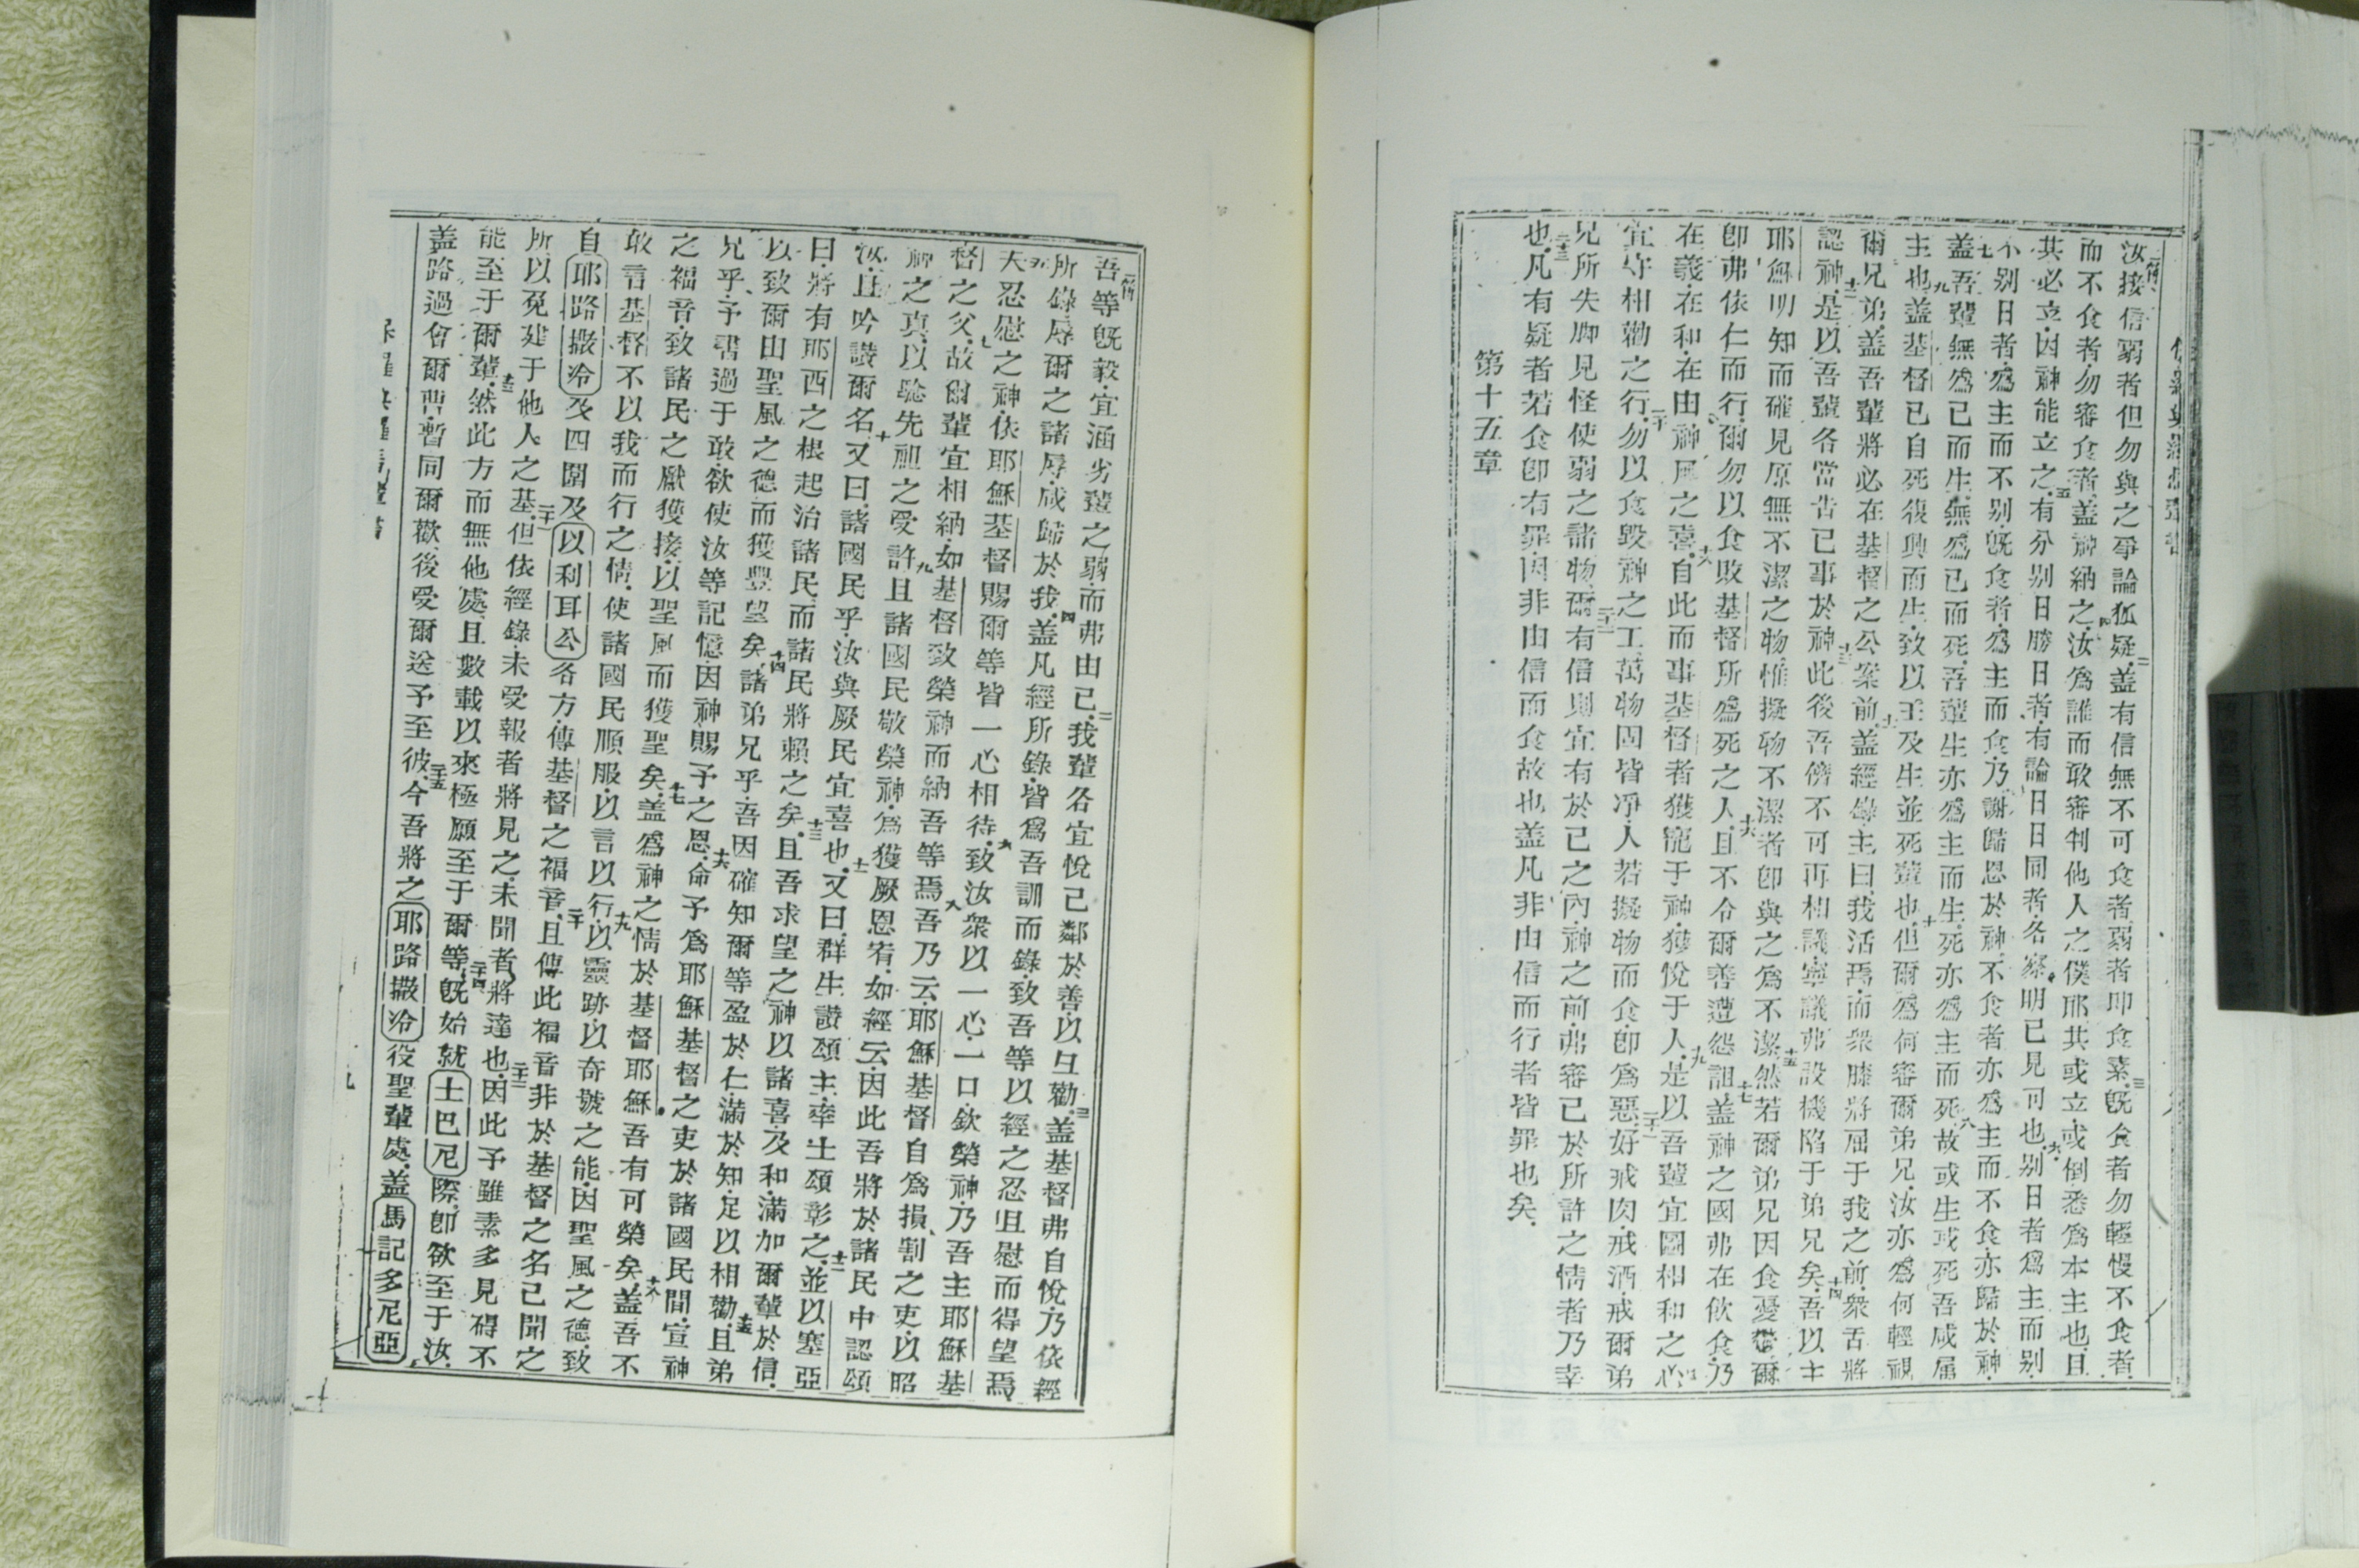 汝接信弱者但勿與之爭論狐疑二蓋有信無不可食者弱者即食素三既食者勿輕慢不食者
而不食者勿審食者蓋神納之四汝為誰而敢審判他人之僕耶其或立或倒悉為本主也且
其必立因神能立之五有分別日勝日者有論日日同者各察明已見可也六別日者為主而別
不別日者為主而不別既食者為主而食乃謝歸恩於神不食者亦為主而不食亦歸於神
七蓋吾輩無為已而生無為已而死八吾輩生亦為主而生死亦為主而死故或生或死吾咸属
主也九蓋基督已自死復興而生致以主及生並死輩也十但爾為何審爾弟兄汝亦為何輕視
爾兄弟蓋吾輩將必在基督之公案前十一蓋經錄主曰我活焉而衆膝將屈于我之前衆舌將
認神十二是以吾輩各當告已事於神十三此後吾儕不可再相議寧議弗設機陷于弟兄矣十四吾以主
耶穌明知而確見原無不潔之物惟擬物不潔者即與之為不潔十五然若爾弟兄因食憂鬱爾
即弗依仁而行爾勿以食敗基督所為死之人十六且不令爾善遭怨詛十七蓋神之國弗在飲食乃
在義在和在由神風之喜十八自此而事基督者獲寵于神獲悅于人十九是以吾輩宜圖相和之心
宜守相勸之行二十勿以食毀神之工萬物固皆凈人若擬物而食即為惡二十一好戒肉戒酒戒爾弟
兄所失脚見怪使弱之諸物二十二爾有信則宜有於己之內神之前弗審己於所許之情者乃幸
也二十三凡有疑者若食即有罪因非由信而食故也蓋凡非由信而行者皆罪也矣
第十五章
吾等既毅宜涵劣輩之弱而弗由己二我輩各宜悅己鄰於善以旦勸三蓋基督弗自悅乃依經
所錄辱爾之諸辱咸歸於我四蓋凡經所錄皆為吾訓而錄致吾等以經之忍且慰而得望焉
五夫忍慰之神依耶穌基督賜爾等皆一心相待六致汝衆以一心一口欽榮神乃吾主耶穌基
督之父七故爾輩宜相納如基督致榮神而納吾等焉八吾乃云耶穌基督自為損割之吏以昭
神之真以騐先祖之受許九且諸國民敬榮神為獲厥恩宥如經云因此吾將於諸民中認頌
汝且吟讚爾名十又曰諸國民乎汝與厥民宜喜也十一又曰群生讚頌主率土頌彰之十二並以塞亞
曰將有耶西之根起治諸民而諸民將賴之矣十三且吾求望之神以諸喜及和滿加爾輩於信
以致爾由聖風之德而獲豐望矣十四諸弟兄乎吾因確知爾等盈於仁滿於知足以相勸十五且弟
兄乎予書過于敢欲使汝等記憶因神賜予之恩十六命予為耶穌基督之吏於諸國民間宣神
之福音致諸民之獻獲接以聖風而獲聖矣十七蓋為神之情於基督耶穌吾有可榮矣十八蓋吾不
敢言基督不以我而行之情使諸國民順服以言以行十九以靈跡以奇號之能因聖風之德致
自耶路撒冷及四圍及以利耳公各方傳基督之福音二十且傳此福音非於基督之名已聞之
所以免建于他人之基二十一但依經錄未受報者將見之未聞者將達也二十二因此予雖素多見碍不
能至于爾輩二十三然此方而無他處且數載以來極願至于爾等二十四既始就士巴尼際即欲至于汝
蓋路過會爾曹暫同爾歡後受爾送予至彼二十五今吾將之耶路撒冷役聖輩處蓋馬記多尼亞
九